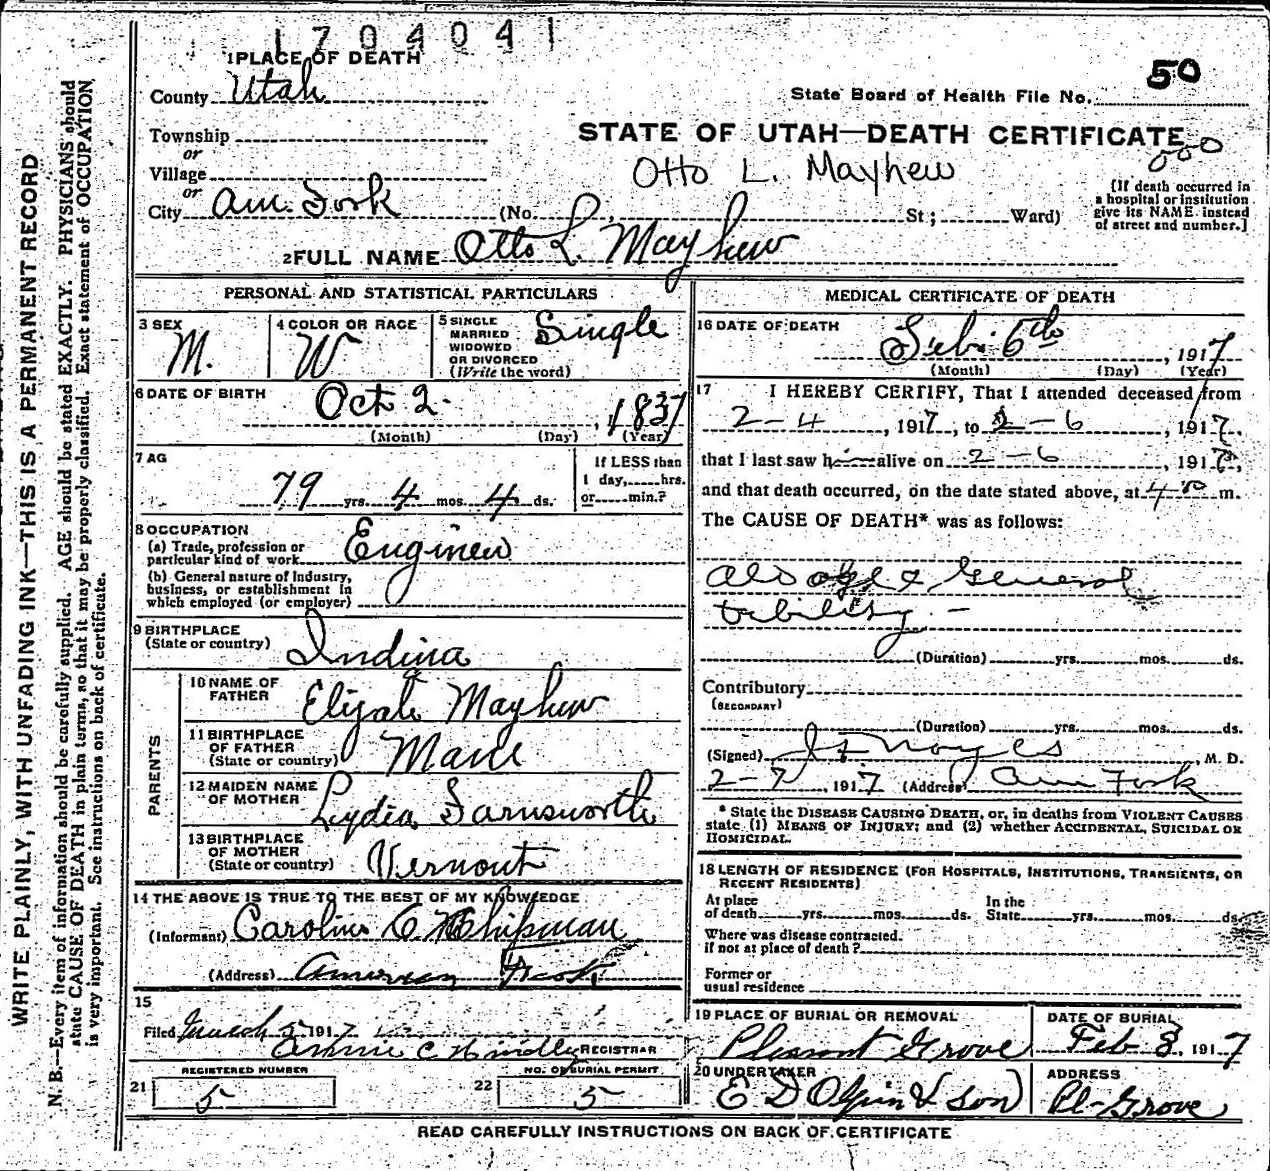 1704041
1 PLACE OF DEATH
50
County Utah
State Board of Health File No.
Township
STATE OF UTAH—DEATH CERTIFICATE
or
000
Village
Otto L. Mayhew
or
City Am. Fork (No. St; Ward)
[If death occurred in
a hospital or institution
give its NAME instead
of street and number.]
2 FULL NAME Otto L. Mayhew
PERSONAL AND STATISTICAL PARTICULARS
3 SEX M.
4 COLOR OR RACE W
5 SINGLE
MARRIED
WIDOWED
OR DIVORCED
(Write the word) Single
6 DATE OF BIRTH Oct 2. , 1837
(Month) (Day) (Year)
7 AG
79 yrs. 4 mos. 4 ds.
If LESS than
1 day, hrs.
or min.?
8 OCCUPATION
(a) Trade, profession or
particular kind of work Engineer
(b) General nature of Industry,
business, or establishment in
which employed (or employer)
9 BIRTHPLACE
(State or country) Indina
PARENTS
10 NAME OF
FATHER Elijah Mayhew
11 BIRTHPLACE
OF FATHER
(State or country) Maine
12 MAIDEN NAME
OF MOTHER Lydia Farnsworth
13 BIRTHPLACE
OF MOTHER
(State or country) Vernont
14 THE ABOVE IS TRUE TO THE BEST OF MY KNOWLEDGE
(Informant) Caroline E. Chipman
(Address) American Fork
15
Filed March 5, 1917
Annie C Hindley REGISTRAR
REGISTERED NUMBER
21 5
NO. OF BURIAL PERMIT
22 5
MEDICAL CERTIFICATE OF DEATH
16 DATE OF DEATH
Feb. 6th , 1917
(Month) (Day) (Year)
17 I HEREBY CERTIFY, That I attended deceased from
2-4 , 1917, to 2-6 , 1917,
that I last saw him alive on 2-6 , 1917,
and that death occurred, on the date stated above, at 4 m.
The CAUSE OF DEATH* was as follows:
old age & General
debility –
(Duration) yrs. mos. ds.
Contributory
(SECONDARY)
(Duration) yrs. mos. ds.
(Signed) Noyes , M. D.
2-7 , 1917 (Address) Am Fork
* State the DISEASE CAUSING DEATH, or, in deaths from VIOLENT CAUSES
state (1) MEANS OF INJURY; and (2) whether ACCIDENTAL, SUICIDAL OR
HOMICIDAL.
18 LENGTH OF RESIDENCE (FOR HOSPITALS, INSTITUTIONS, TRANSIENTS, OR
RECENT RESIDENTS)
At place
of death yrs. mos. ds.
In the
State yrs. mos. ds.
Where was disease contracted.
if not at place of death?
Former or
usual residence
19 PLACE OF BURIAL OR REMOVAL
Pleasant Grove
DATE OF BURIAL
Feb 8, 1917
20 UNDERTAKER
E D Olpin & Son
ADDRESS
Pl-Grove
READ CAREFULLY INSTRUCTIONS ON BACK OF CERTIFICATE
WRITE PLAINLY, WITH UNFADING INK—THIS IS A PERMANENT RECORD
N. B.—Every item of information should be carefully supplied. AGE should be stated EXACTLY. PHYSICIANS should
state CAUSE OF DEATH in plain terms, so that it may be properly classified. Exact statement of OCCUPATION
is very important. See instructions on back of certificate.